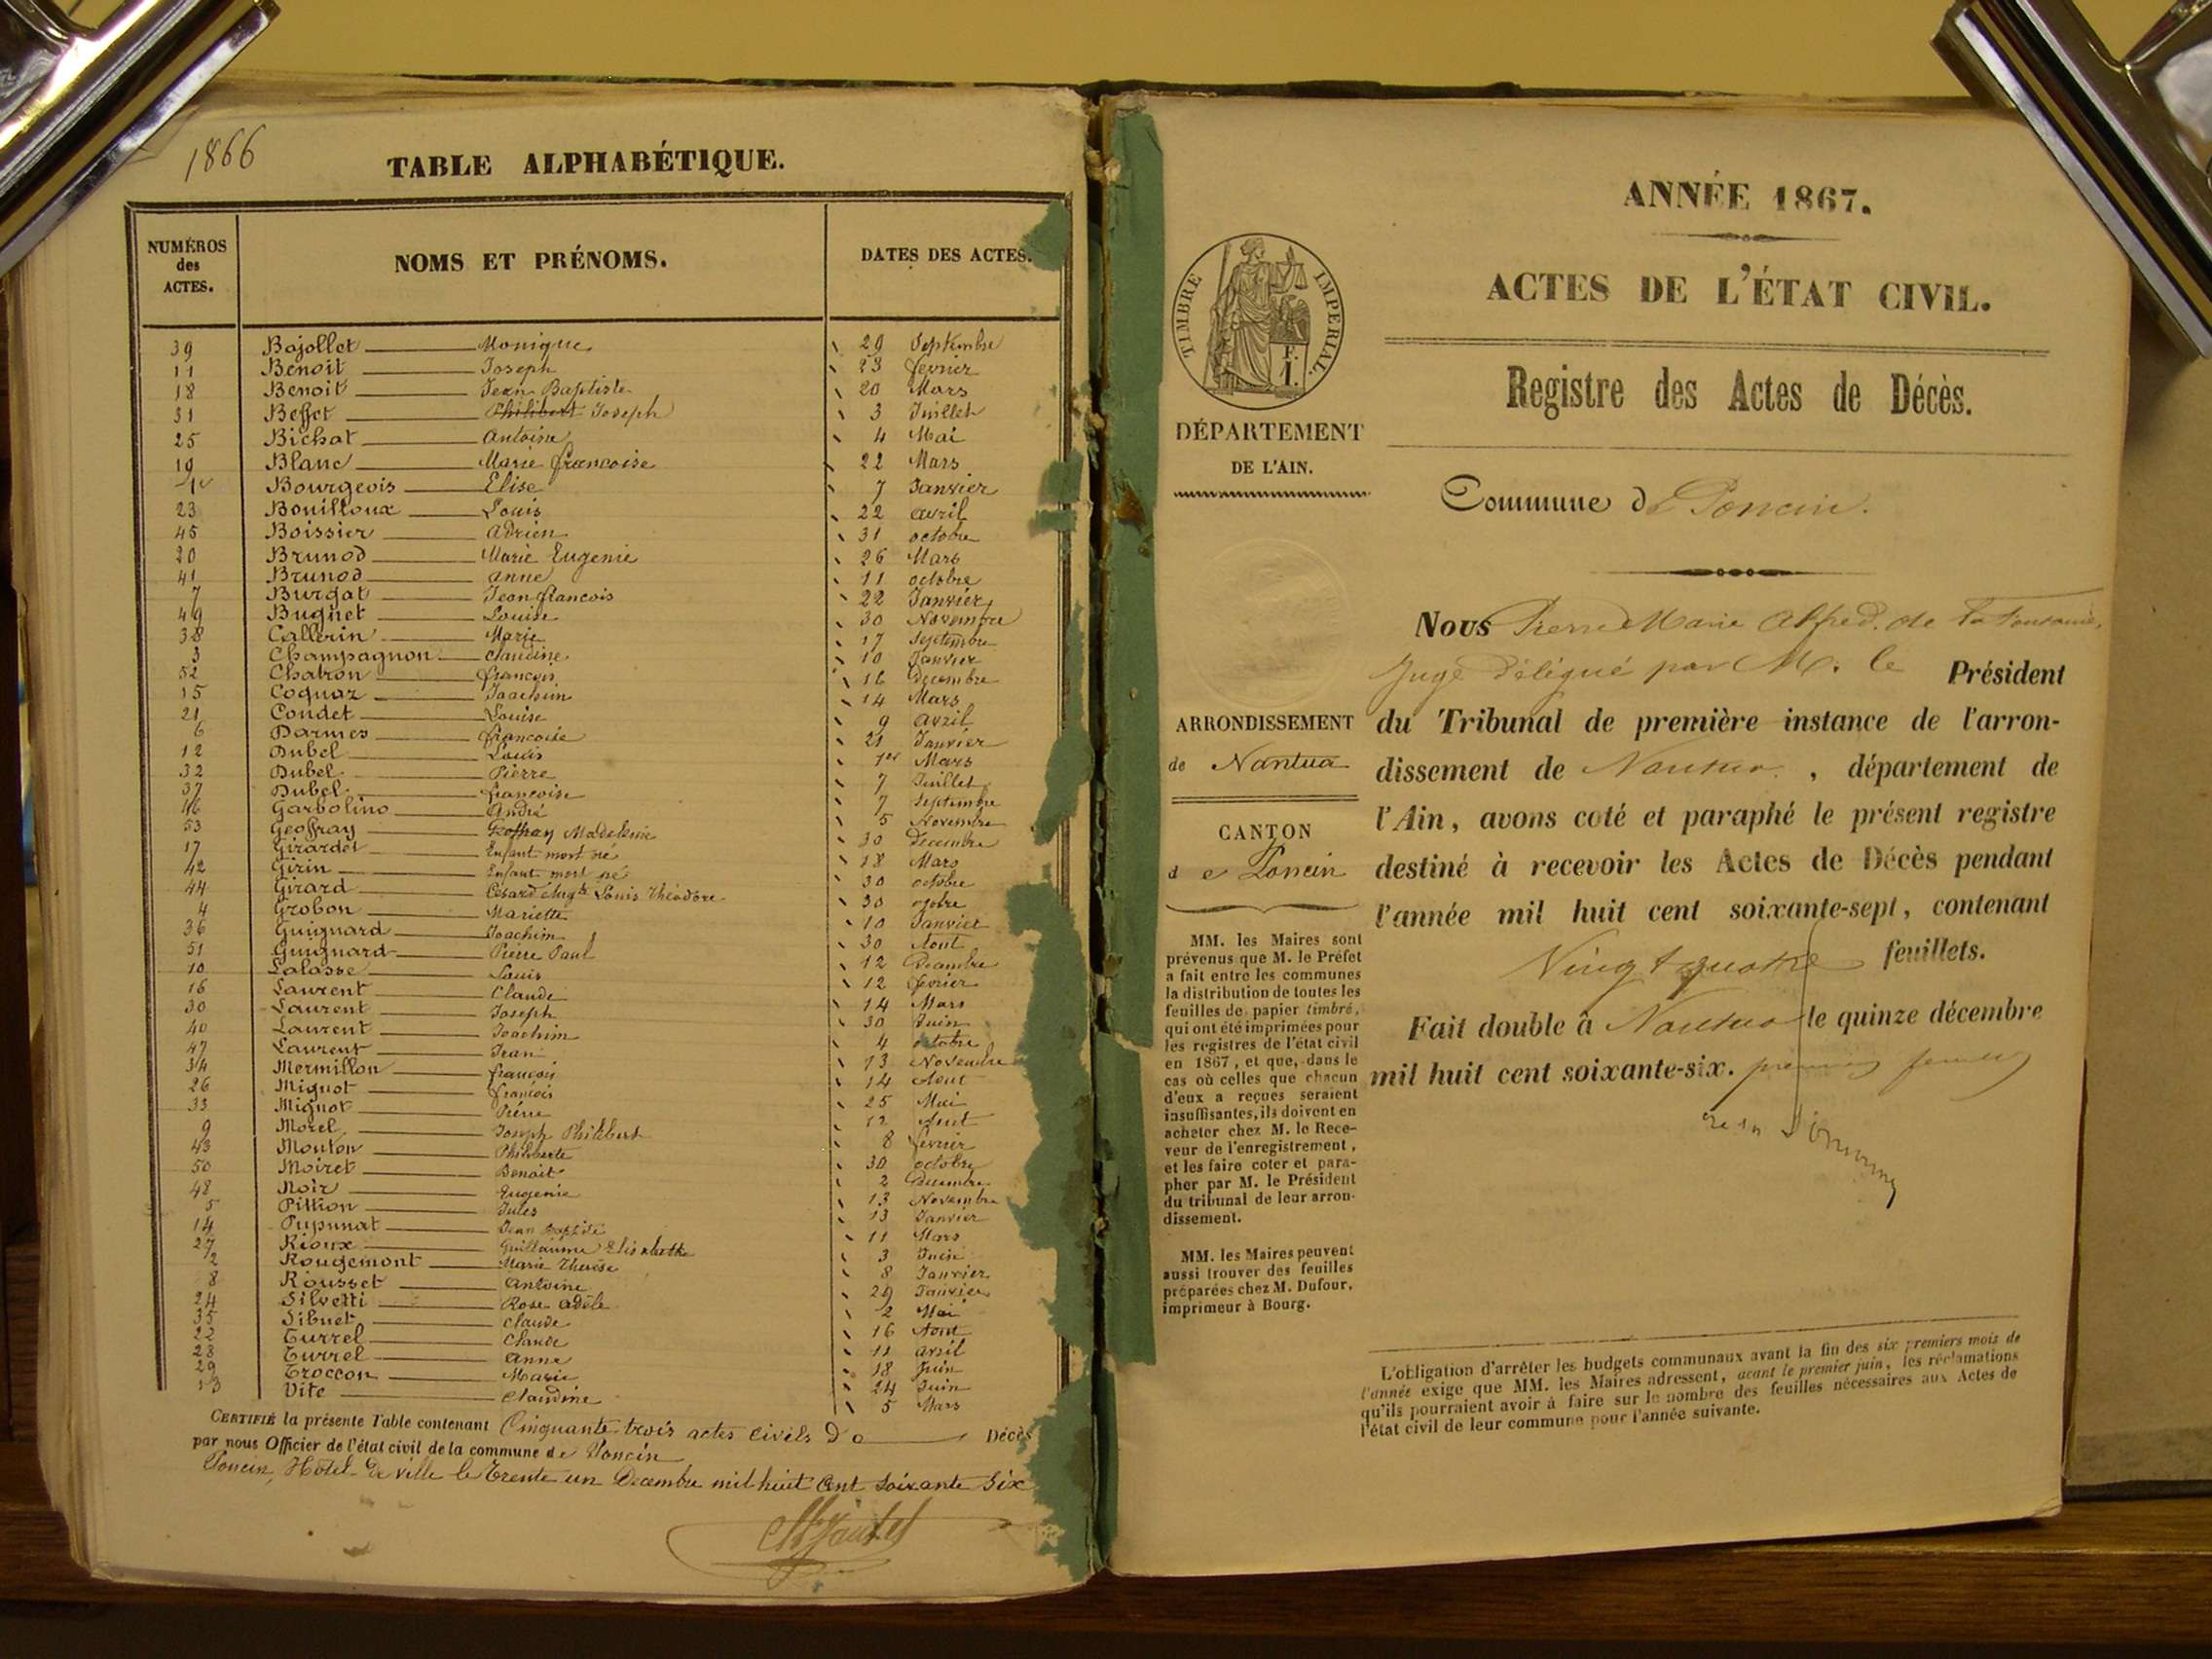 1866
TABLE ALPHABÉTIQUE.
NUMÉROS des ACTES. NOMS ET PRÉNOMS. DATES DES ACTES.
39 Bajollet Monique 29 Septembre
11 Benoit Joseph 23 février
18 Benoit Jean Baptiste 20 Mars
31 Beffet Philibert Joseph 3 Juillet
25 Bichat Antoine 4 Mai
19 Blanc Marie françoise 22 Mars
1 Bourgeois Elise 7 Janvier
23 Bouilloux Louis 22 avril
45 Boissier Adrien 31 octobre
20 Brunod Marie Eugenie 26 Mars
41 Brunod anne 11 octobre
7 Burgat Jean francois 22 Janvier
49 Bugnet Louise 30 Novembre
38 Callerin Marie 17 Septembre
3 Champagnon Claudine 10 Janvier
52 Chatron francois 16 Decembre
15 Coquaz Joachim 14 Mars
21 Coudet Louise 9 avril
6 Darmes francoise 21 Janvier
12 Dubel Louis 1er Mars
32 Dubel Pierre 7 Juillet
37 Dubel francoise 7 Septembre
46 Garbolino André 5 Novembre
53 Geoffray Geoffray Madeleine 30 Decembre
17 Girardet Enfant mort né 18 Mars
42 Girin Enfant mort né 30 octobre
44 Girard César Augte Louis Théodore 30 octobre
4 Grobon Mariette 10 Janvier
36 Guignard Joachim 30 Aout
51 Guignard Pierre Paul 12 Decembre
10 Lalasse Louis 12 février
16 Laurent Claude 14 Mars
30 Laurent Joseph 30 Juin
40 Laurent Joachim 4 octobre
47 Laurent Jean 13 Novembre
34 Mermillon françois 14 Aout
26 Mignot françois 25 Mai
33 Mignot Pierre 12 Aout
9 Morel Joseph Philibert 8 février
43 Mouton Philiberte 30 octobre
50 Moiret Benoit 2 Decembre
48 Noir Eugenie 13 Novembre
5 Pittion Jules 13 Janvier
14 Pupunat Jean Baptiste 11 Mars
27 Rioux Guillaume Elisabeth 3 Juin
2 Rougemont Marie Therèse 8 Janvier
8 Rousset Antoine 29 Janvier
24 Silvetti Rose Adèle 2 Mai
35 Sibuet Claude 16 Aout
22 Turrel Claude 11 avril
28 Turrel Anne 18 Juin
29 Troccon Marie 24 Juin
13 Vite Claudine 5 Mars
CERTIFIÉ la présente Table contenant Cinquante trois actes civils De Décès
par nous Officier de l'état civil de la commune de Poncin
Poncin, Hôtel de ville le trente un Decembre mil huit cent soixante six
ANNÉE 1867.
ACTES DE L'ÉTAT CIVIL.
Registre des Actes de Décès.
TIMBRE IMPERIAL.
F. 1.
DÉPARTEMENT
DE L'AIN.
Commune de Poncin.
ARRONDISSEMENT
de Nantua
CANTON
de Poncin
MM. les Maires sont
prévenus que M. le Préfet
a fait entre les communes
la distribution de toutes les
feuilles de papier timbré,
qui ont été imprimées pour
les registres de l'état civil
en 1867, et que, dans le
cas où celles que chacun
d'eux a reçues seraient
insuffisantes, ils doivent en
acheter chez M. le Rece-
veur de l'enregistrement,
et les faire coter et para-
pher par M. le Président
du tribunal de leur arron-
dissement.
MM. les Maires peuvent
aussi trouver des feuilles
préparées chez M. Dufour,
imprimeur à Bourg.
NOUS Pierre Marie Alfred de
Juge délégué par M. le Président
du Tribunal de première instance de l'arron-
dissement de Nantua, département de
l'Ain, avons coté et paraphé le présent registre
destiné à recevoir les Actes de Décès pendant
l'année mil huit cent soixante-sept, contenant
Vingt quatre feuillets.
Fait double à Nantua le quinze décembre
mil huit cent soixante-six. premier
L'obligation d'arrêter les budgets communaux avant la fin des six premiers mois de
l'année exige que MM. les Maires adressent, avant le premier juin, les réclamations
qu'ils pourraient avoir à faire sur le nombre des feuilles nécessaires aux Actes de
l'état civil de leur commune pour l'année suivante.